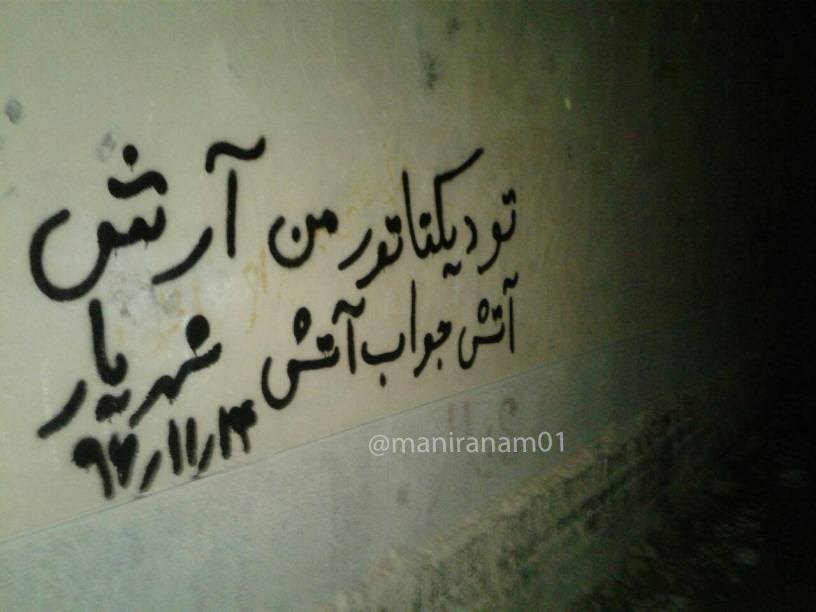 تو دیکتاتور من آرش
آتش جواب آتش
شهریار
۹۶ر۱۱ر۱۳
@maniranam01